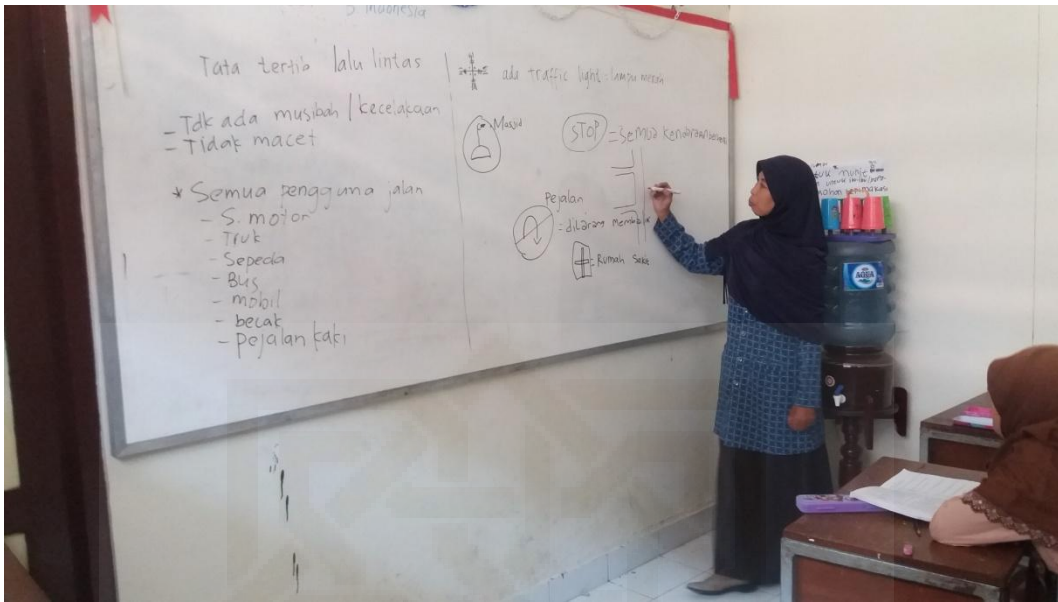 B Indonesia
Tata tertib lalu lintas
= Tdk ada musibah / kecelakaan
= Tidak macet
* Semua pengguna jalan
- S. motor
- Truk
- Sepeda
- Bus
- mobil
- becak
- pejalan kaki
ada traffic light : lampu merah
Masjid
STOP = Semua kendaraan
Pejalan
= dilarang
= Rumah Sakit
AQUA